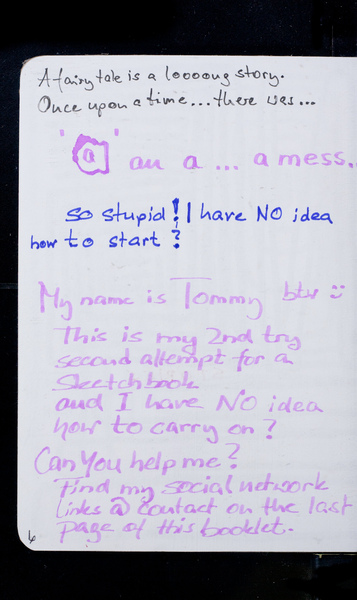 A fairy tale is a loooong story.
Once upon a time... there was...
'a' an a ... a mess..
so stupid! I have NO idea
how to start?
My name is Tommy btw :)
This is my 2nd try
second attempt for a
Sketchbook
and I have NO idea
how to carry on?
Can You help me?
Find my social network
links @ contact on the last
page of this booklet.
6